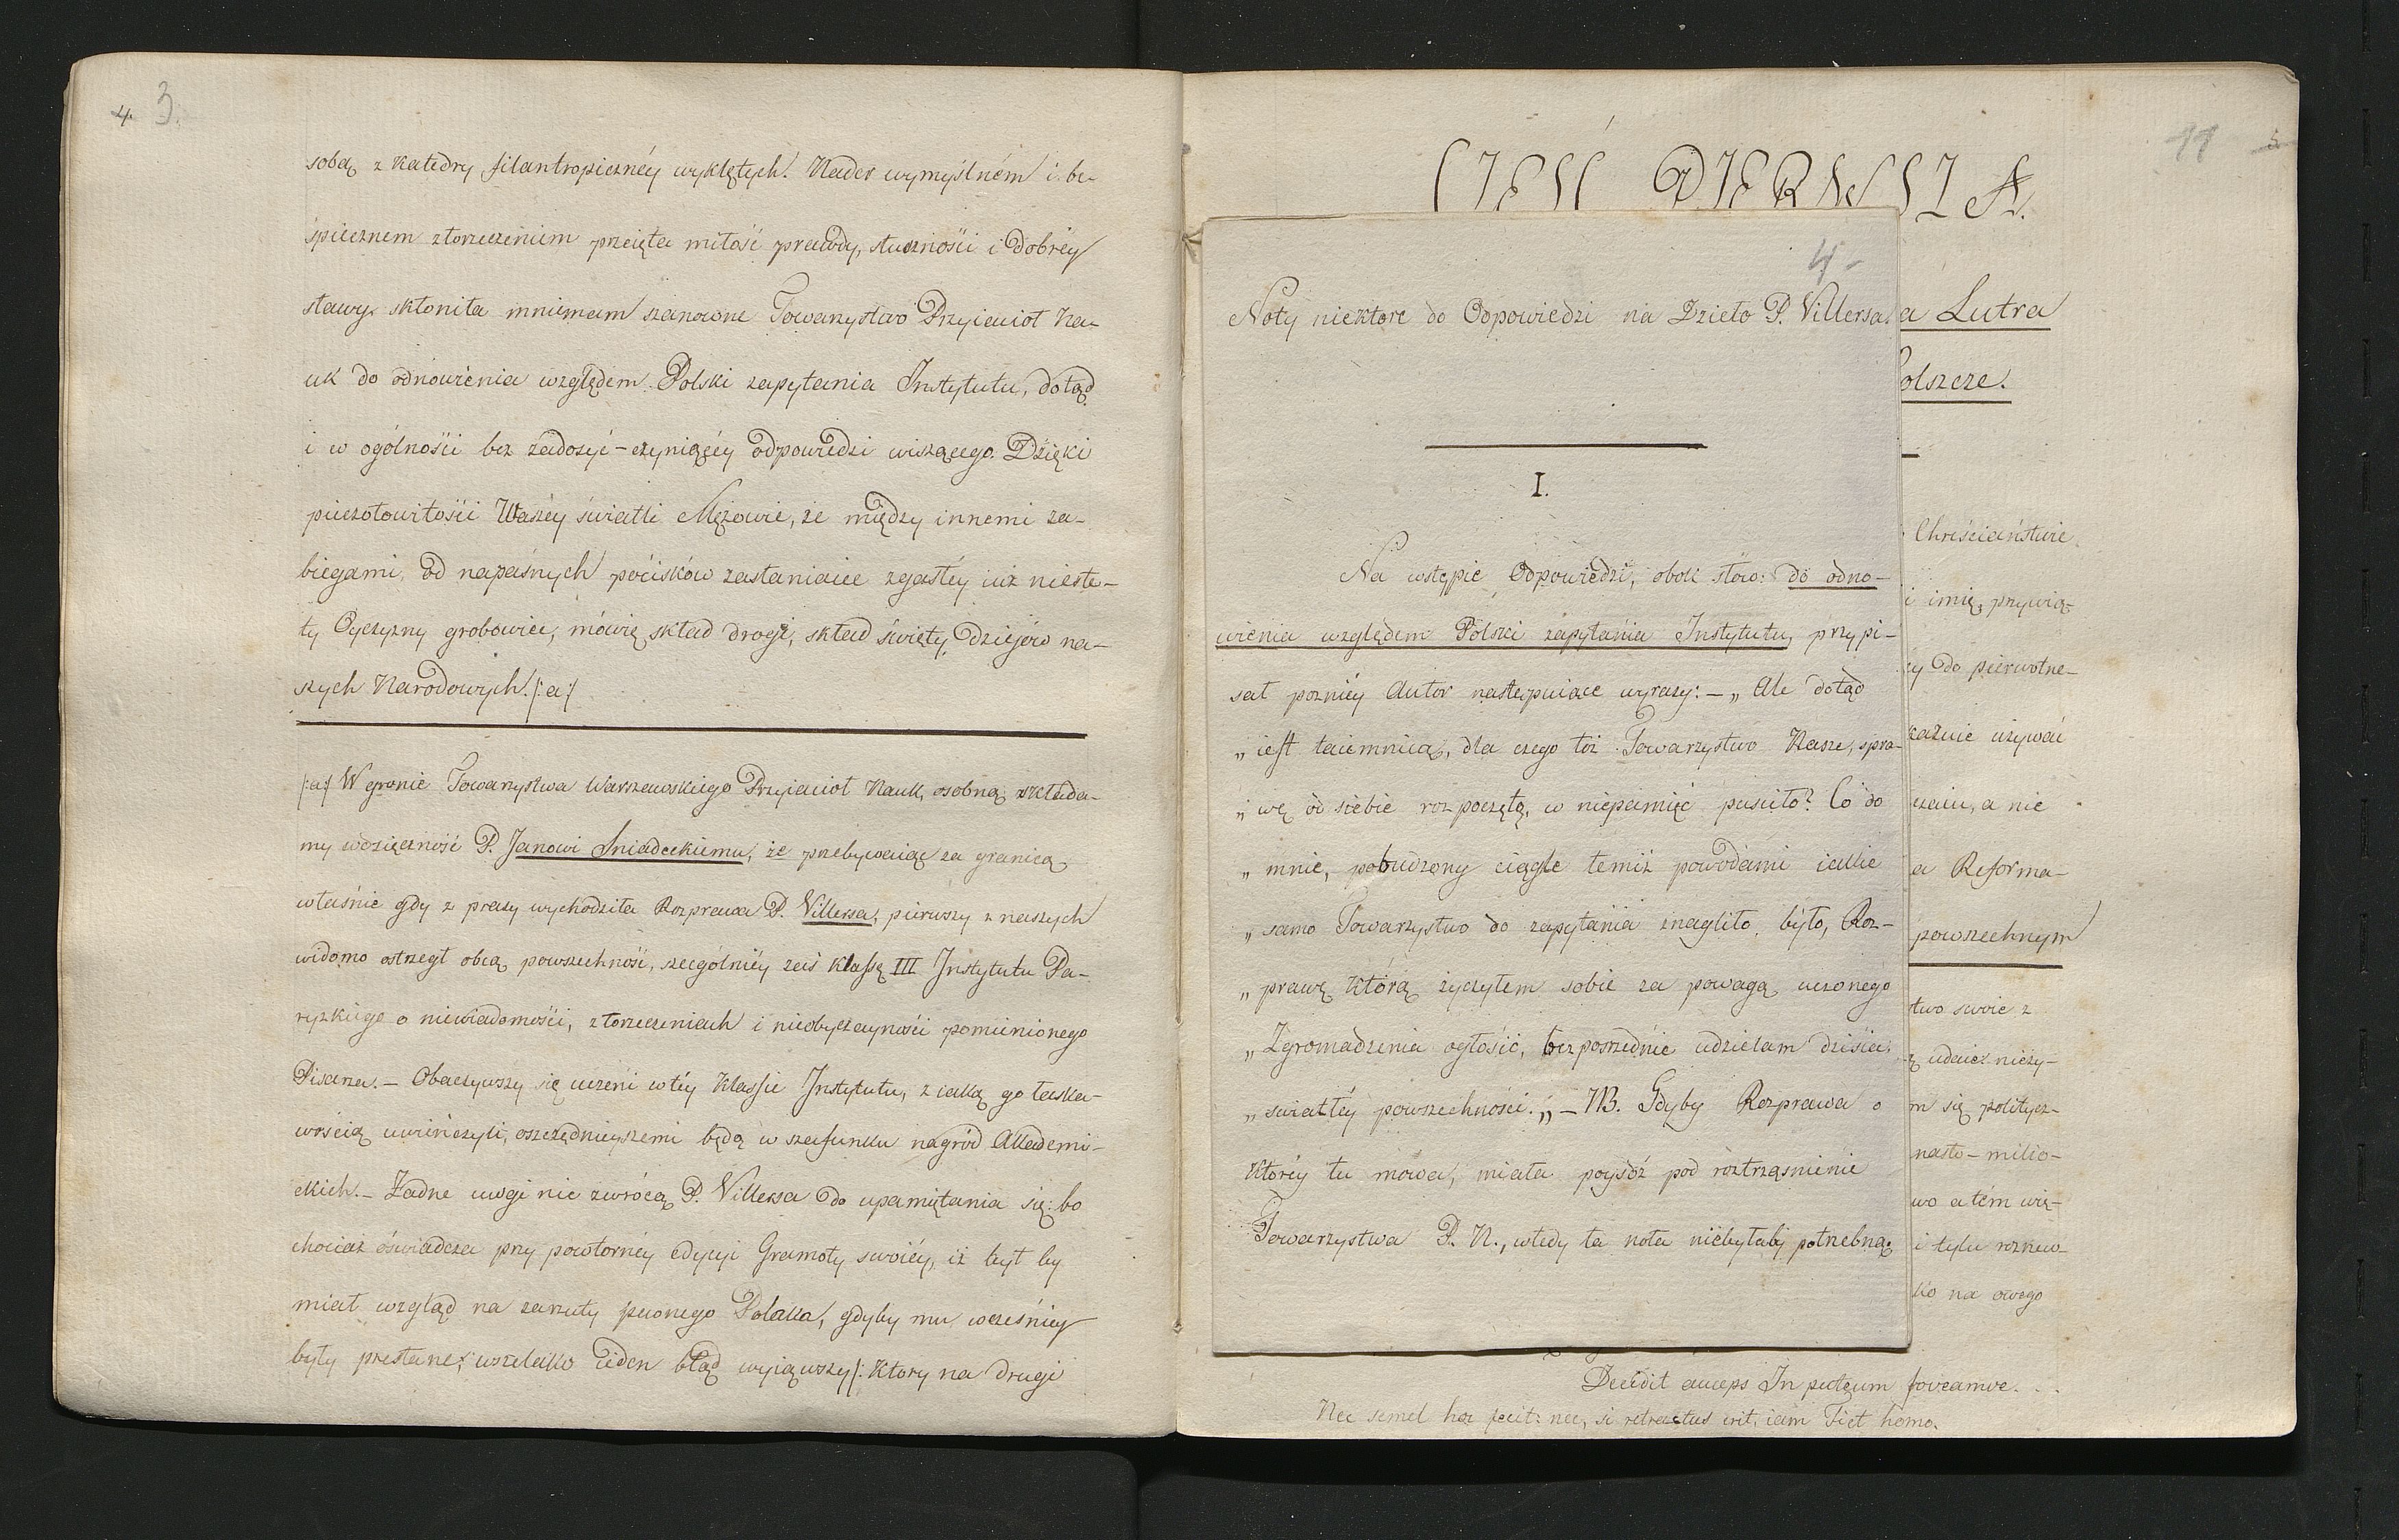 4. 3.
sobą z Katedry filantropicznéy wyklętych! Nader wymyślném i be-
śpiecznem złorzeczeniem przeięta miłość prawdy, słuszności i dobréy
sławy skłoniła mniemam szanowne Towarzystwo Przyiaciół Na-
uk do odnowienia względem Polski zapytania Instytutu, dotąd
i w ogólności bez zadosyć-czyniącéy odpowiedzi wiszącego. Dzięki
pieczołowitości Waszéy światli Mężowie, że między innemi za-
biegami, od napaśnych pocisków zasłaniacie zgasłéy iuż nieste-
ty Oyczyzny grobowiec, mówię skład drogi, skład święty, dziejów na-
szych Narodowych. /:a:/
/:a:/ W gronie Towarzystwa Warszawskiego Przyiaciół Nauk, osobną składa-
my wdzięczność P. Janowi Sniadeckiemu, że przebywaiąc za granicą
właśnie gdy z prasy wychodziła Rozprawa P. Villersa, pierwszy z naszych
widomo ostrzegł obcą powszechność, szególniéy zaś klassę III Instytutu Pa-
ryzkiego o niewiadomości, złorzeczeniach i nieobyczayności pomienionego
Pisarza. – Obaczywszy się uczeni w téy Klassie Instytutu, z iaką go łaska-
wością uwieńczyli, oszczędnieyszemi będą w szafunku nagród Akademi-
ckich. – Żadne uwagi nie zwrócą P. Villersa do upamiętania się: bo
chociaż oświadcza przy powtornéy edycyi Gramoty swoiéy, iż był by
miał wzgląd na zarzuty pewnego Polaka, gdyby mu wcześniey
były przesłane; wszelako ieden błąd wyiąwszy /: Ktory na drugi
11 5
CZĘŚĆ PIERWSZA.
4-
Noty niektore do Odpowiedzi na Dzieło P. Villersa.
I.
Na wstępie Odpowiedzi, obok słów: do odno-
wienia względem Polski zapytania Instytutu, przypi-
sał pozniéy Autor następuiące wyrazy: – „Ale dotąd
„iest taiemnicą, dla czego toż Towarzystwo Nasze, spra-
„wę od siebie rozpoczętą, w niepamięć puściło? Co do
„mnie, pobudzony ciągle temiż powodami iakie
„samo Towarzystwo do zapytania znagliło było, Roz-
„prawę którą życzyłem sobie za powagą uczonego
„Zgromadzenia ogłosić, bezpośrednie udzielam dzisia
„światłéy powszechności.„ – NB. Gdyby Rozprawa o
Któréy tu mowa, miała poyśdź pod roztrząsnienie
Towarzystwa P. N., wtedy ta nota niebyłaby potrzebną
a Lutra
olszcze.
Chrześciaństwie
i imię, przywią-
y do pierwotne-
kaźnie używać
czaiu, a nie
a Reforma-
powszechnym
two swoie z
ą udaież nieży-
m się politycz-
nasto-milio-
wo a tém wię-
i tylu roznew-
ko na owego
Decidit auceps In puteum foveamve. . .
Nec semel hoc fecit: nec, si retractus erit, iam Fiet homo.